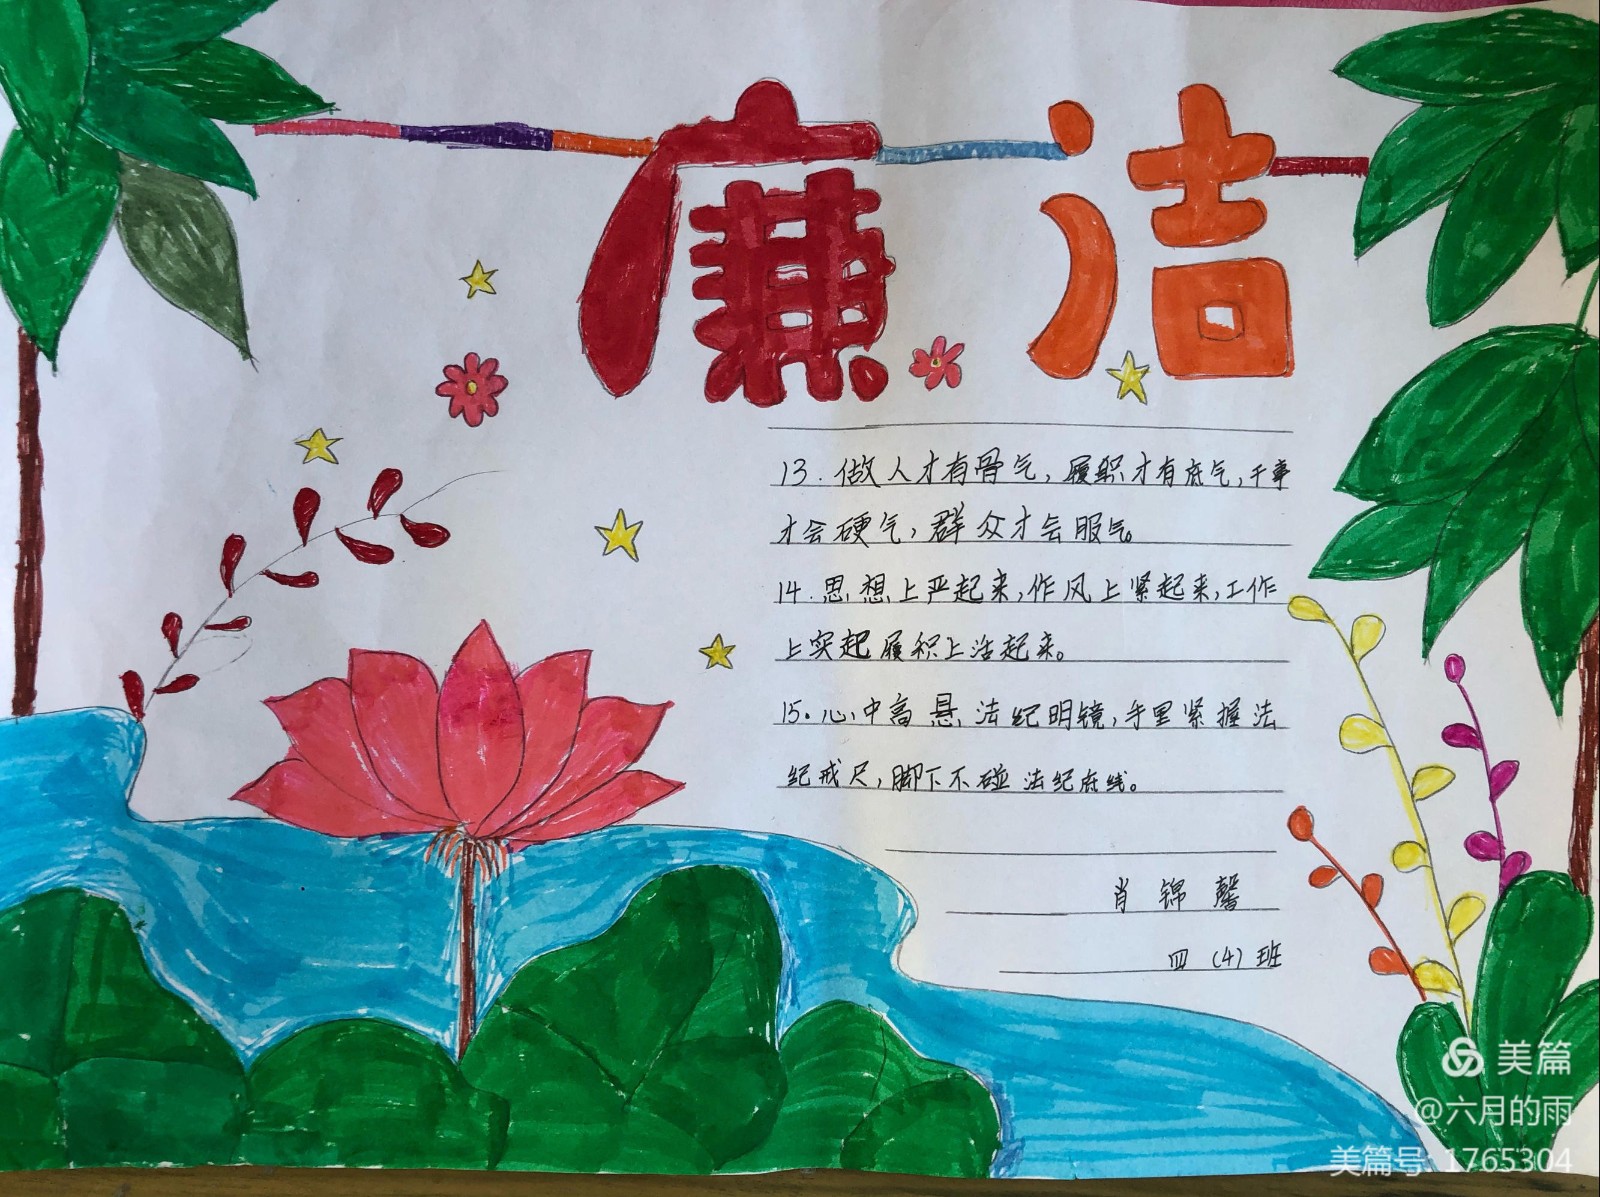 廉洁
13.做人才有骨气,履职才有底气,干事
才会硬气,群众才会服气。
14.思想上严起来,作风上紧起来,工作
上实起履积上活起来。
15.心中高悬法纪明镜,手里紧握法
纪戒尺,脚下不碰法纪底线。
肖锦馨
四(4)班
美篇
@六月的雨
美篇号:1765304